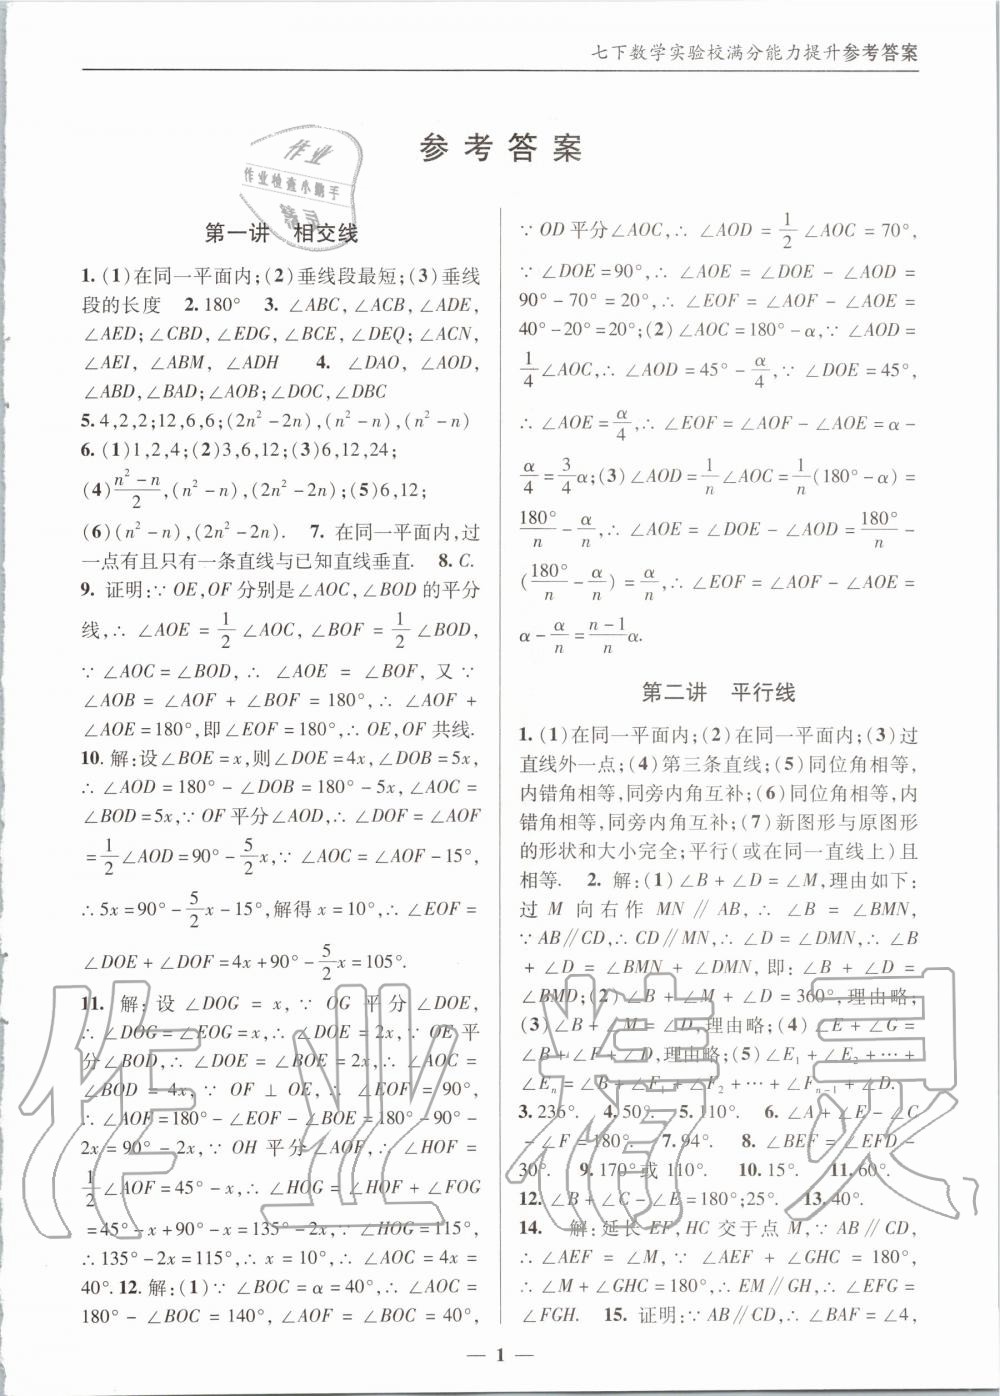 七下数学实验校满分能力提升参考答案
参考答案
作业
作业检查小帮手
精灵
第一讲 相交线
1. (1)在同一平面内;(2)垂线段最短;(3)垂线
段的长度 2.180° 3. ∠ABC,∠ACB,∠ADE,
∠AED;∠CBD,∠EDG,∠BCE,∠DEQ;∠ACN,
∠AEI,∠ABM,∠ADH 4. ∠DAO,∠AOD,
∠ABD,∠BAD;∠AOB;∠DOC,∠DBC
5.4,2,2;12,6,6;(2n²-2n),(n²-n),(n²-n)
6. (1)1,2,4;(2)3,6,12;(3)6,12,24;
(4)(n²-n)/2,(n²-n),(2n²-2n);(5)6,12;
(6)(n²-n),(2n²-2n). 7. 在同一平面内,过
一点有且只有一条直线与已知直线垂直. 8. C.
9. 证明:∵OE,OF分别是∠AOC,∠BOD的平分
线,∴∠AOE=1/2∠AOC,∠BOF=1/2∠BOD,
∵∠AOC=∠BOD,∴∠AOE=∠BOF,又∵
∠AOB=∠AOF+∠BOF=180°,∴∠AOF+
∠AOE=180°,即∠EOF=180°,∴OE,OF共线.
10. 解:设∠BOE=x,则∠DOE=4x,∠DOB=5x,
∴∠AOD=180°-∠DOB=180°-5x,∠AOC=
∠BOD=5x,∵OF平分∠AOD,∴∠DOF=∠AOF
=1/2∠AOD=90°-5/2x,∵∠AOC=∠AOF-15°,
∴5x=90°-5/2x-15°,解得x=10°,∴∠EOF=
∠DOE+∠DOF=4x+90°-5/2x=105°.
11. 解:设∠DOG=x,∵OG平分∠DOE,
∴∠DOG=∠EOG=x,∴∠DOE=2x,∵OE平
分∠BOD,∴∠DOE=∠BOE=2x,∴∠AOC=
∠BOD=4x,∵OF⊥OE,∴∠EOF=90°,
∴∠AOF=180°-∠EOF-∠BOE=180°-90°-
2x=90°-2x,∵OH平分∠AOF,∴∠HOF=
1/2∠AOF=45°-x,∴∠HOG=∠HOF+∠FOG
=45°-x+90°-x=135°-2x,∵∠HOG=115°,
∴135°-2x=115°,∴x=10°,∴∠AOC=4x=
40°.12. 解:(1)∵∠BOC=α=40°,∴∠AOC=
180°-∠BOC=140°,∠AOF=∠BOC=40°,
∵OD平分∠AOC,∴∠AOD=1/2∠AOC=70°,
∵∠DOE=90°,∴∠AOE=∠DOE-∠AOD=
90°-70°=20°,∴∠EOF=∠AOF-∠AOE=
40°-20°=20°;(2)∠AOC=180°-α,∵∠AOD=
1/4∠AOC,∴∠AOD=45°-α/4,∵∠DOE=45°,
∴∠AOE=α/4,∴∠EOF=∠AOF-∠AOE=α-
α/4=3/4α;(3)∠AOD=1/n∠AOC=1/n(180°-α)=
180°/n-α/n,∴∠AOE=∠DOE-∠AOD=180°/n-
(180°/n-α/n)=α/n,∴∠EOF=∠AOF-∠AOE=
α-α/n=(n-1)/nα.
第二讲 平行线
1. (1)在同一平面内;(2)在同一平面内,(3)过
直线外一点;(4)第三条直线;(5)同位角相等,
内错角相等,同旁内角互补;(6)同位角相等,内
错角相等,同旁内角互补;(7)新图形与原图形
的形状和大小完全;平行(或在同一直线上)且
相等. 2. 解:(1)∠B+∠D=∠M,理由如下:
过M向右作MN∥AB,∴∠B=∠BMN,
∵AB∥CD,∴CD∥MN,∴∠D=∠DMN,∴∠B
+∠D=∠BMN+∠DMN,即:∠B+∠D=
∠BMD;(2)∠B+∠M+∠D=360°,理由略;
(3)∠B+∠M=∠D,理由略;(4)∠E+∠G=
∠B+∠F+∠D,理由略;(5)∠E₁+∠E₂+…+
∠Eₙ=∠B+∠F₁+∠F₂+…+∠Fₙ₋₁+∠D.
3.236°. 4.50°. 5.110°. 6. ∠A+∠E-∠C
-∠F=180°. 7.94°. 8. ∠BEF=∠EFD-
30°. 9.170°或110°. 10.15°. 11.60°.
12.∠B+∠C-∠E=180°;25°. 13.40°.
14. 解:延长EF,HC交于点M,∵AB∥CD,
∴∠AEF=∠M,∵∠AEF+∠GHC=180°,
∴∠M+∠GHC=180°,∴EM∥GH,∴∠EFG=
∠FGH. 15. 证明:∵AB∥CD,∴∠BAF=∠4,
作业精灵
— 1 —